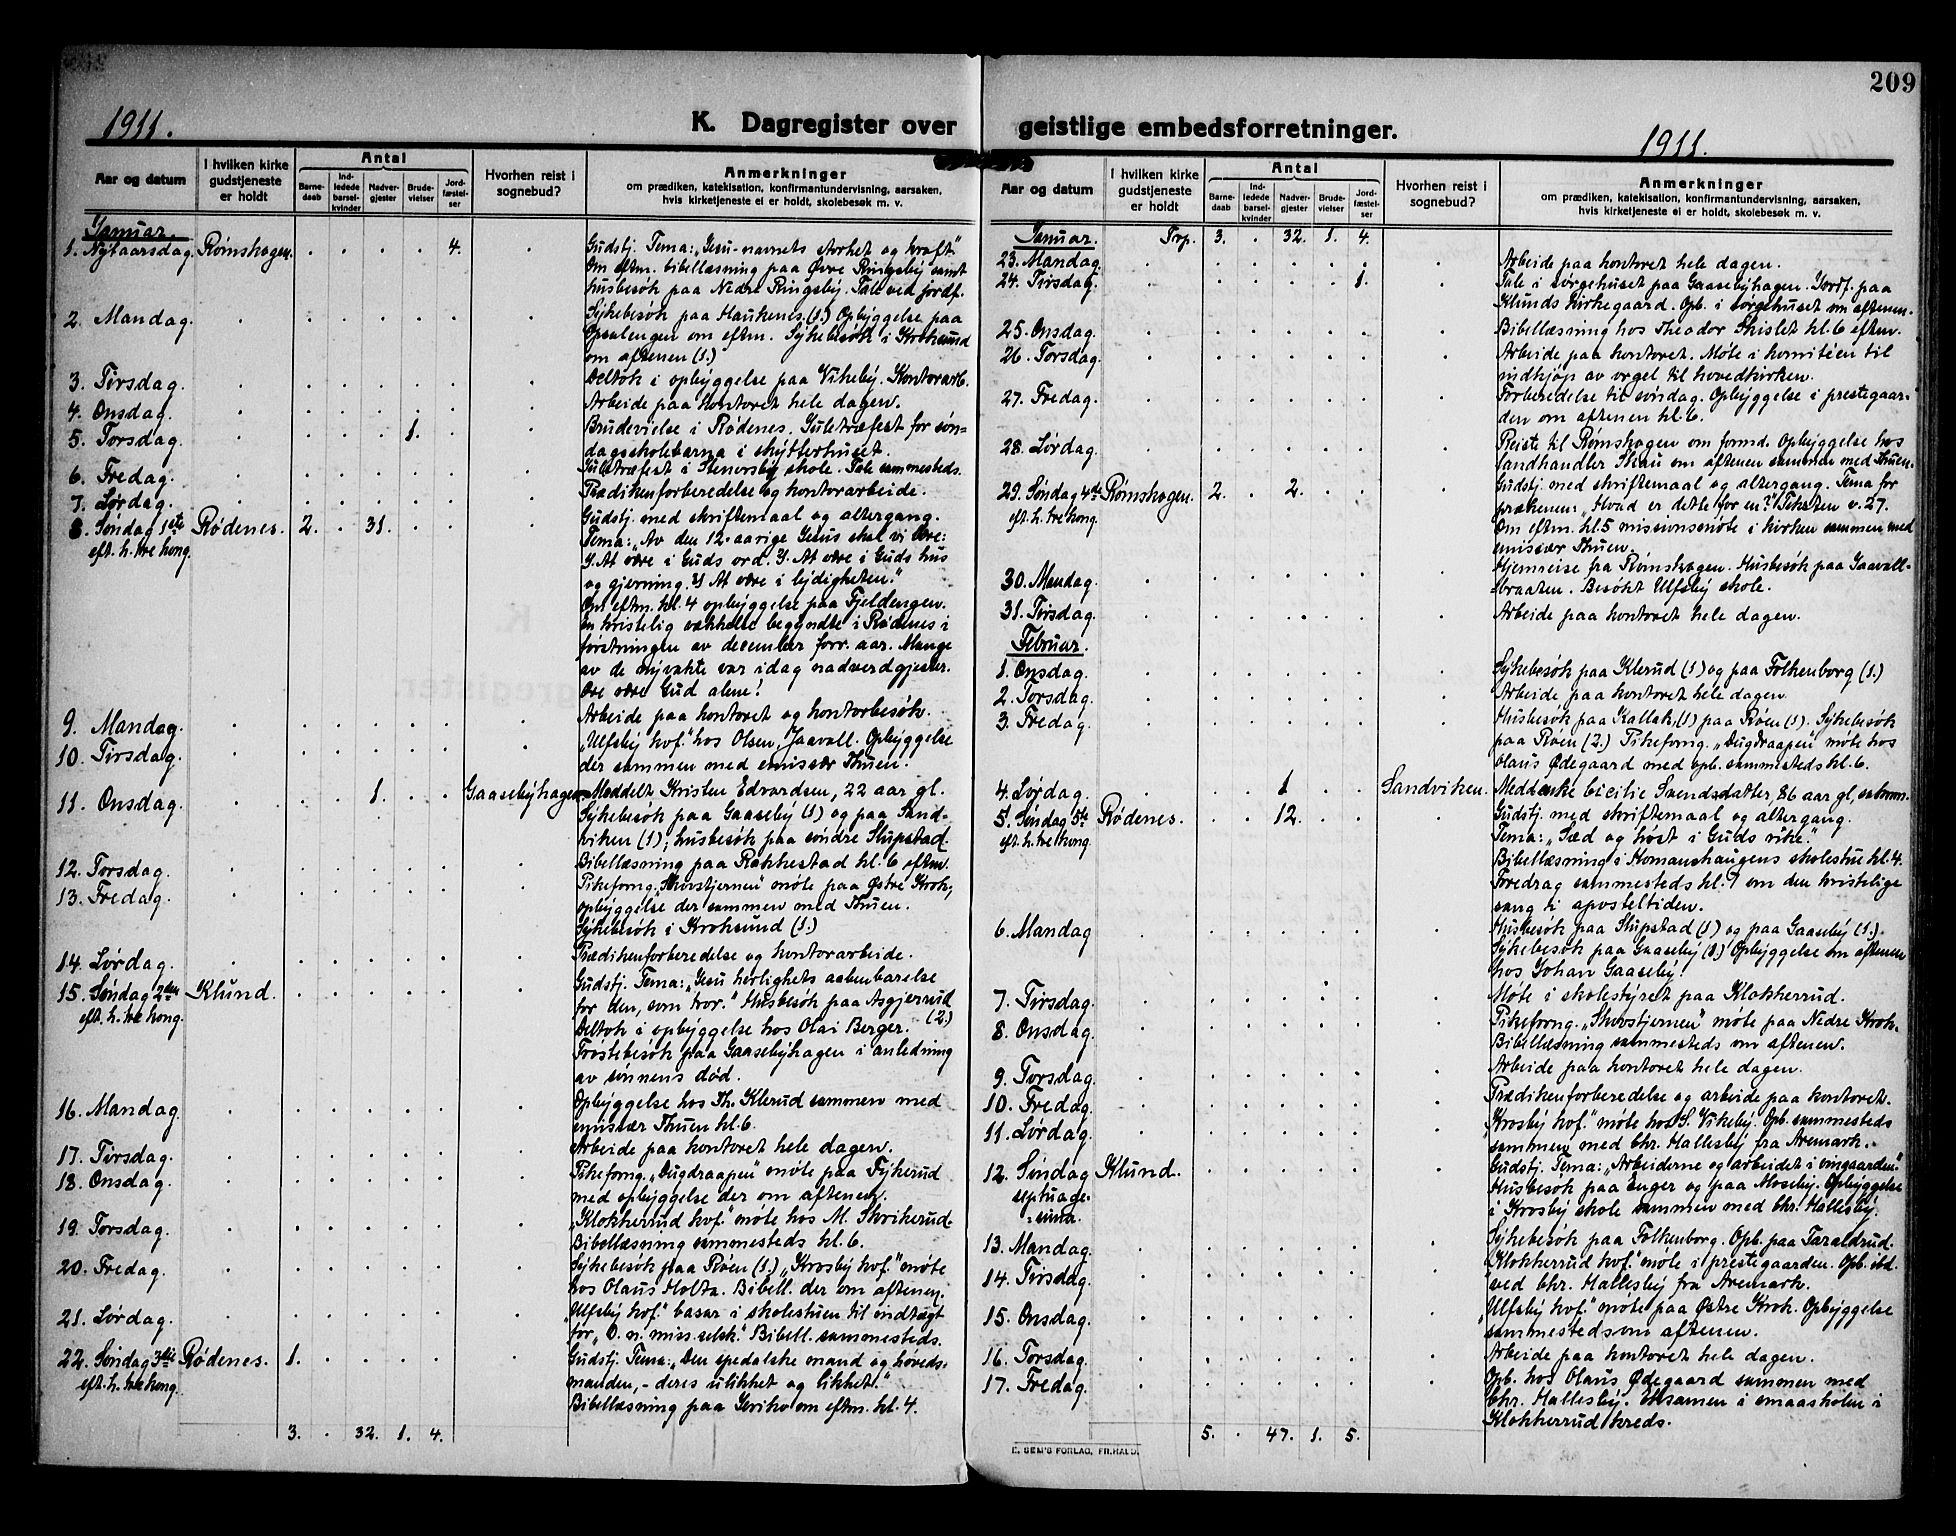 209
1911.
K. Dagregister over
Aar og datum
I hvilken kirke gudstjeneste er holdt
Antal
Barnedaab
Indledede barselkvinder
Nadvergjester
Brudevielser
Jordfæstelser
Hvorhen reist i sognebud?
Anmerkninger
om prædiken, katekisation, konfirmantundervisning, aarsaken,
hvis kirketjeneste ei er holdt, skolebesøk m. v.
Januar.
1. Nytaarsdag. Rømskogen. . . . . 4. . Gudstj. Tema: "Jesu-navnets storhet og kraft."
Om eftm. bibellæsning paa Øvre Ringsby samt
husbesøk paa Nedre Ringsby. Tale ved jordf.
2. Mandag. Sykebesøk paa Haukenes. (1.) Opbyggelse paa
om eftm. Sykebesøk i Kroksund
om aftenen (1.)
3. Tirsdag. Deltok i opbyggelse paa Vikeby. Kontorarb.
4. Onsdag. Arbeide paa kontoret hele dagen.
5. Torsdag. 1. Brudevielse i Rødenes. Juletræfest for søn-
dagsskolebarna i skytterhuset.
6. Fredag. Juletræfest i Stenersby skole. Tale sammesteds.
7. Lørdag. Prædikenforberedelse og kontorarbeide.
8. Søndag 1ste Rødenes. 2. . 31. Gudstj. med skriftemaal og altergang.
eft. h. tre kong. Tema: "Av den 12-aarige Jesus skal vi lære:
1. At være i Guds ord. 2. At være i Guds hus
og gjerning. 3. At være i lydigheten."
Om eftm. kl. 4 opbyggelse paa Fjeldengen.
En kristelig vækkelse begyndte i Rødenes i
førstningen av december forr. aar. Mange
av de nyvakte var idag nadverdgjester.
Ære være Gud alene!
9. Mandag. Arbeide paa kontoret og kontorbesøk.
10. Tirsdag. "Ulfsby kvf." hos Olsen, Jaavall. Opbyggelse
der sammen med emissær Thuen.
11. Onsdag. 1. Gaasebyhagen. Meddelt Kristen Edvardsen, 22 aar gl.
Sykebesøk paa Gaaseby (1) og paa Sand-
viken (1); husbesøk paa søndre Slupstad.
12. Torsdag. Bibellæsning paa Rakkestad kl. 6 eftm.
13. Fredag. Pikeforng. "Skovstjernen" møte paa Østre Krok,
opbyggelse der sammen med Thuen.
Sykebesøk i Kroksund (1.)
14. Lørdag. Prædikenforberedelse og kontorarbeide.
15. Søndag 2den Klund. Gudstj. Tema: "Jesu herlighets aabenbarelse
eft. h. tre kong. for den, som tror." Husbesøk paa Asgjerrud (2.)
Deltok i opbyggelse hos Olai Berger.
Trøstebesøk paa Gaasebyhagen i anledning
av sønnens død.
16. Mandag. Opbyggelse hos Th. Klerud sammen med
emissær Thuen kl. 6.
17. Tirsdag. Arbeide paa kontoret hele dagen.
18. Onsdag. Pikeforng. "Dugdraapen" møte paa Fykerud
med opbyggelse der om aftenen.
19. Torsdag. "Klokkerrud kvf." møte hos M. Skrikerud.
Bibellæsning sammesteds kl. 6.
20. Fredag. Sykebesøk paa Røen (1.) "Krosby kvf." møte
hos Olaus Holta. Bibell. der om aftenen.
21. Lørdag. "Ulfsby kvf." basar i skolestuen til indtægt
for "D. n. miss. selsk." Bibell. sammesteds.
22. Søndag 3die Rødenes. 1. Gudstj. Tema: "Den spedalske mand og høveds-
eft. h. tre kong. manden, - deres ulikhet og likhet."
Bibellæsning paa Jeriko om eftm. kl. 4.
3. . 32. 1. 4.
geistlige embedsforretninger.
1911.
Aar og datum
I hvilken kirke gudstjeneste er holdt
Antal
Barnedaab
Indledede barselkvinder
Nadvergjester
Brudevielser
Jordfæstelser
Hvorhen reist i sognebud?
Anmerkninger
om prædiken, katekisation, konfirmantundervisning, aarsaken,
hvis kirketjeneste ei er holdt, skolebesøk m. v.
Januar. Trp. 3. . 32. 1. 4.
23. Mandag. Arbeide paa kontoret hele dagen.
24. Tirsdag. 1. Tale i sørgehuset paa Gaasebyhagen. Jordf. paa
Klunds kirkegaard. Opb. i sørgehuset om aftenen.
25. Onsdag. Bibellæsning hos Theodor kl. 6 eftm.
26. Torsdag. Arbeide paa kontoret. Møte i komitéen til
indkjøp av orgel til hovedkirken.
27. Fredag. Forberedelse til søndag. Opbyggelse i prestegaar-
den om aftenen kl. 6.
28. Lørdag. Reiste til Rømskogen om formd. Opbyggelse hos
landhandler Skau om aftenen sammen med Thuen.
29. Søndag 4de Rømskogen. 2. . 2. Gudstj. med skriftemaal og altergang. Tema for
eft. h. tre kong. prækenen: "Hvad er dette for en?" Teksten v. 27.
Om eftm. kl. 5 missionsmøte i kirken sammen med
emissær Thuen.
30. Mandag. Hjemreise fra Rømskogen. Husbesøk paa Gaavall-
braaten. Besøkt Ulfsby skole.
31. Tirsdag. Arbeide paa kontoret hele dagen.
Februar.
1. Onsdag. Sykebesøk paa Klerud (1) og paa Folkenborg (1.)
2. Torsdag. Arbeide paa kontoret hele dagen.
3. Fredag. Husbesøk paa Kallak (1) paa Røen (1). Sykebesøk
paa Røen (2.) Pikeforng. "Dugdraapen" møte hos
Olaus Ødegaard med opb. sammesteds kl. 6.
4. Lørdag. 1 Sandviken. Meddt. enke Cicilie Svendsdatter, 86 aar gl,
5. Søndag 5te Rødenes. 12. Gudstj. med skriftemaal og altergang.
eft. h. tre kong. Tema: "Sæd og høst i Guds rike."
Bibellæsning i Komanshaugens skolestue kl. 4.
Foredrag sammesteds kl. 7 om den kristelige
sang ti aposteltiden.
6. Mandag Husbesøk paa Slupstad (1) og paa Gaaseby (1.).
Sykebesøk paa Gaaseby (1.) Opbyggelse om aftenen
hos Johan Gaaseby.
7. Tirsdag. Møte i skolestyret paa Klokkerrud.
8. Onsdag. Pikeforng. "Skovstjernen" møte paa Nedre Krok.
Bibellæsning sammesteds om aftenen.
9. Torsdag. Arbeide paa kontoret hele dagen.
10. Fredag. Prædikenforberedelse og arbeide paa kontoret.
11. Lørdag. "Krosby kvf." møte hos S. Vikeby. Opb. sammesteds
sammen med Chr. Hallesby fra Aremark.
12. Søndag Klund. Gudstj. Tema: "Arbeiderne og arbeidet i vingaarden."
septuage- Husbesøk paa Enger og paa Moseby. Opbyggelse
sima. i Krosby skole sammen med Chr. Hallesby.
13. Mandag. Sykebesøk paa Folkenborg. Opb. paa Taraldrud.
14. Tirsdag. "Klokkerrud kvf." møte i prestegaarden. Opb. ibd.
ved Chr. Hallesby fra Aremark.
15. Onsdag. "Ulfsby kvf." møte paa Østre Krok. Opbyggelse
sammesteds om aftenen.
16. Torsdag. Arbeide paa kontoret hele dagen.
17. Fredag. Opb. hos Olaus Ødegaard sammen med
Chr. Hallesby. Eksamen i smaaskolen i
Klokkerrud kreds.
5. . 47. 1. 5.
E. SEM'S FORLAG, FR.HALD.